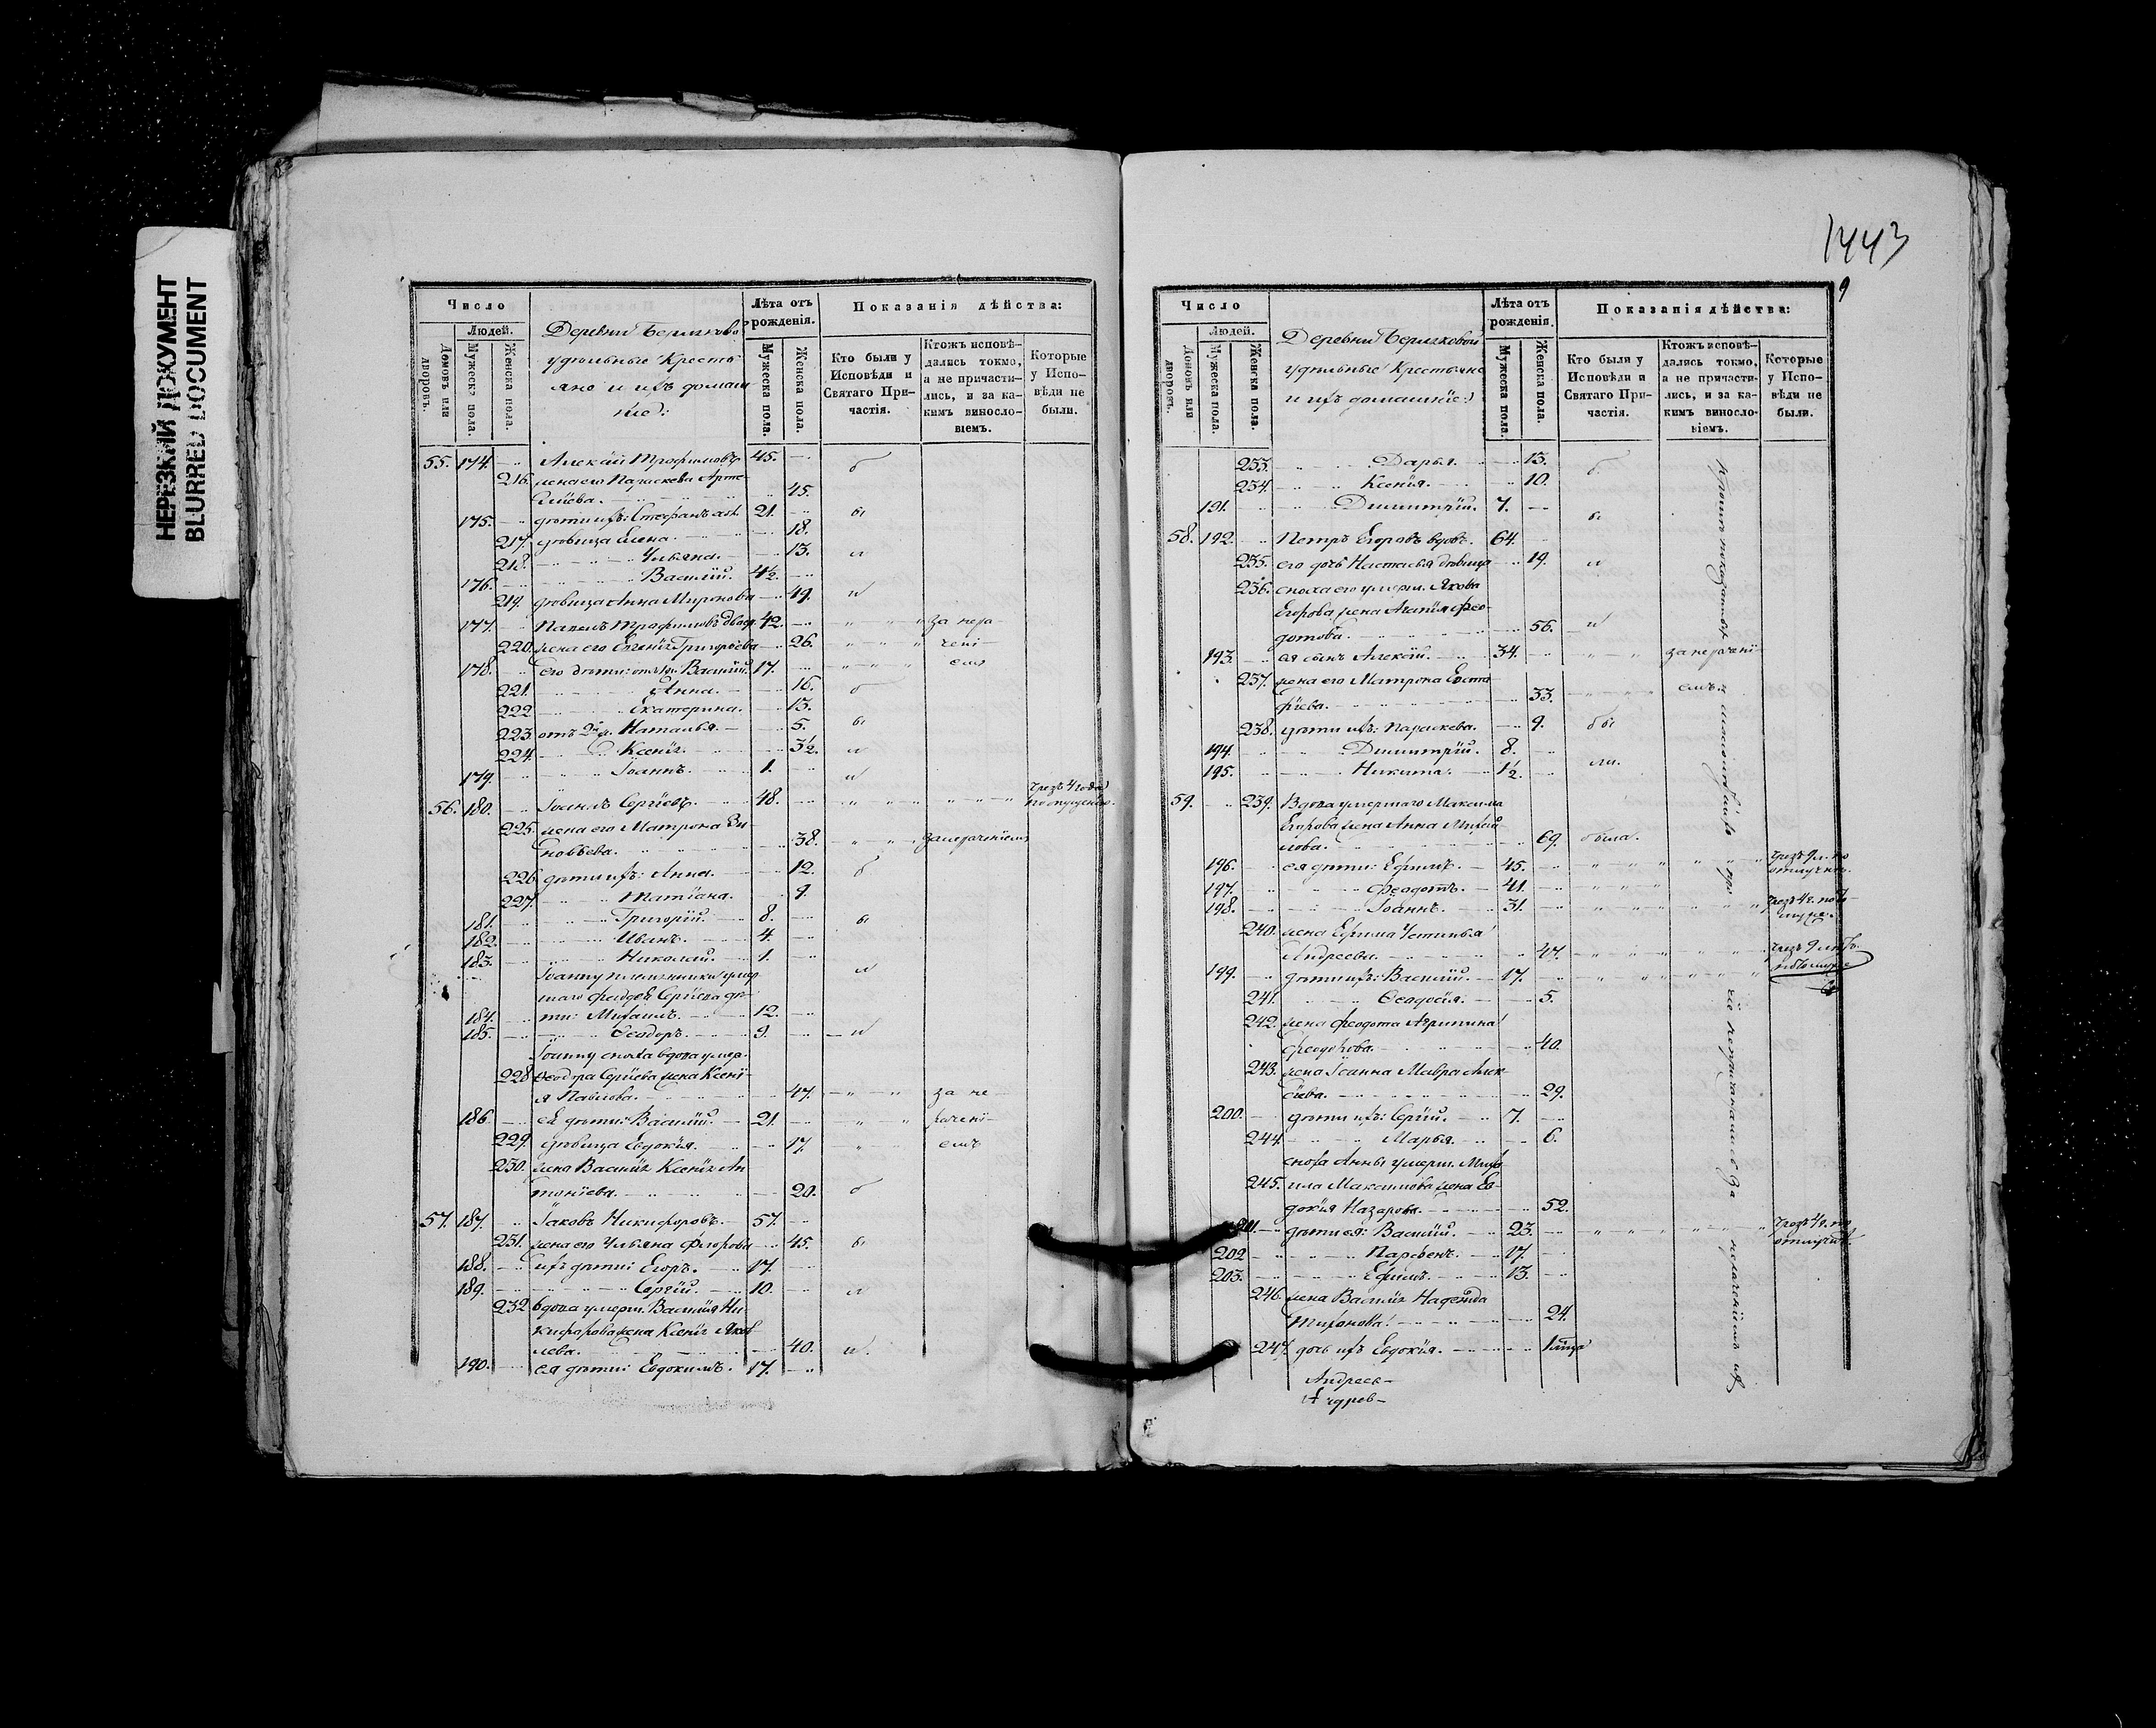 НЕРЕЗКИЙ ДОКУМЕНТ
BLURRED DOCUMENT
Число
Людей.
Домовъ или дворовъ.
Мужеска пола.
Женска пола.
Деревни
удѣльные Кресть
яне и ихъ домаш
ніе:
Лѣта отъ рожденія.
Мужеска пола.
Женска пола.
Показанія дѣйства:
Кто были у Исповѣди и Святаго Причастія.
Ктожъ исповѣдались токмо, а не причастились, и за какимъ винословіемъ.
Которые у Исповѣди не были.
55. 174. Алексѣй Трофимовъ 45. б
216. жена его Параскева Арте-
мьева. 45.
175. дѣти ихъ: Стефанъ 21. ы
217. дѣвица Елена. 18.
218. Ульяна. 13. л
176. Василій. 4½.
219. дѣвица Анна Миронова 49. и
177. Павелъ Трофимовъ 42. за нера-
220. жена его Григорьева 26. чені-
178. его дѣти: Василій. 17. емъ
221. Анна. 16. б
222. Екатерина. 13.
223. отъ 2й ж. Наталья. 5. ы
224. Ксенія. 3½. л
179. Іоаннъ. 1. и
56. 180. Іоаннъ Сергѣевъ. 48. чрезъ 4 года по опущенію.
225. жена его Матрона Зи-
новьева. 38. за нераченіемъ
226. дѣти ихъ: Анна. 12. б
227. Татіана. 9.
181. Григорій. 8. ы
182. Иванъ. 4.
183. Николай. 1.
Іоанну племянники умер
шаго Сергѣева дѣ- л
184. ти: Михаилъ. 12.
185. Ѳеодоръ. 9. и
Іоанну сноха вдова умер.
228. Ѳеодора Сергѣева жена Ксені-
я Павлова. 47. за не-
186. ея дѣти: Василій. 21. рачені-
229. дѣвица Евдокія. 17. емъ
230. жена Василія Ксенія Ан
тоніева. 20. б
57. 187. Іаковъ Никифоровъ. 57.
231. жена его Ульяна Ѳедорова 45. ы
188. ихъ дѣти: Егоръ. 17.
189. Сергій. 10. л
232. вдова умерш. Василія Ни-
кифорова жена Ксенія Яков
лева. 40. и.
190. ея дѣти: Евдокимъ. 17.
1443
9
Число
Людей.
Домовъ или дворовъ.
Мужеска пола.
Женска пола.
Деревни
удѣльные Крестьяне
и ихъ домашніе:
Лѣта отъ рожденія.
Мужеска пола.
Женска пола.
Показанія дѣйства:
Кто были у Исповѣди и Святаго Причастія.
Ктожъ исповѣдались токмо, а не причастились, и за какимъ винословіемъ.
Которые у Исповѣди не были.
233. Дарья. 13. б
234. Ксенія. 10.
191. Димитрій. 7. ы
58. 192. Петръ Егоровъ вдовъ. 64.
235. его дочь Настасья дѣвица 19. л
236. сноха его умерш. Якова
Егорова жена Агапія Ѳео-
дотова. 56. и
193. ея сынъ Алексѣй. 34. за нерачені-
237. жена его Матрона Евста- емъ
фіева. 33.
238. дѣти ихъ: Параскева. 9. бы
194. Димитрій. 8.
195. Никита. 1½. ли.
59. 239. Вдова умершаго Максима
Егорова жена Анна Михай-
лова. 69. была.
196. ея дѣти: Ефимъ. 45. чрезъ 9 л. по отлучкѣ.
197. Ѳеодотъ. 41.
198. Іоаннъ. 31. чрезъ 4 г.
240. жена Ефима Устинья
Андреева. 47. чрезъ 9 лѣтъ
199. дѣти ихъ: Василій. 17.
241. Ѳеодосія. 5.
242. жена Ѳеодота Агрипина
Ѳеодорова. 40.
243. жена Іоанна Мавра Алек-
сѣева. 29.
200. дѣти ихъ: Сергій. 7.
244. Марья. 6.
сноха Анны умерш. Миха
245. ила Максимова жена Ев-
докія Назарова. 52.
201. дѣти ея: Василій. 23. чрезъ 4 г. по отлучкѣ.
202. Парѳенъ. 17.
203. Ефимъ. 13.
246. жена Василія Надежда
Тихонова. 24.
247. дочь ихъ Евдокія.
Андреев-
Андрев-